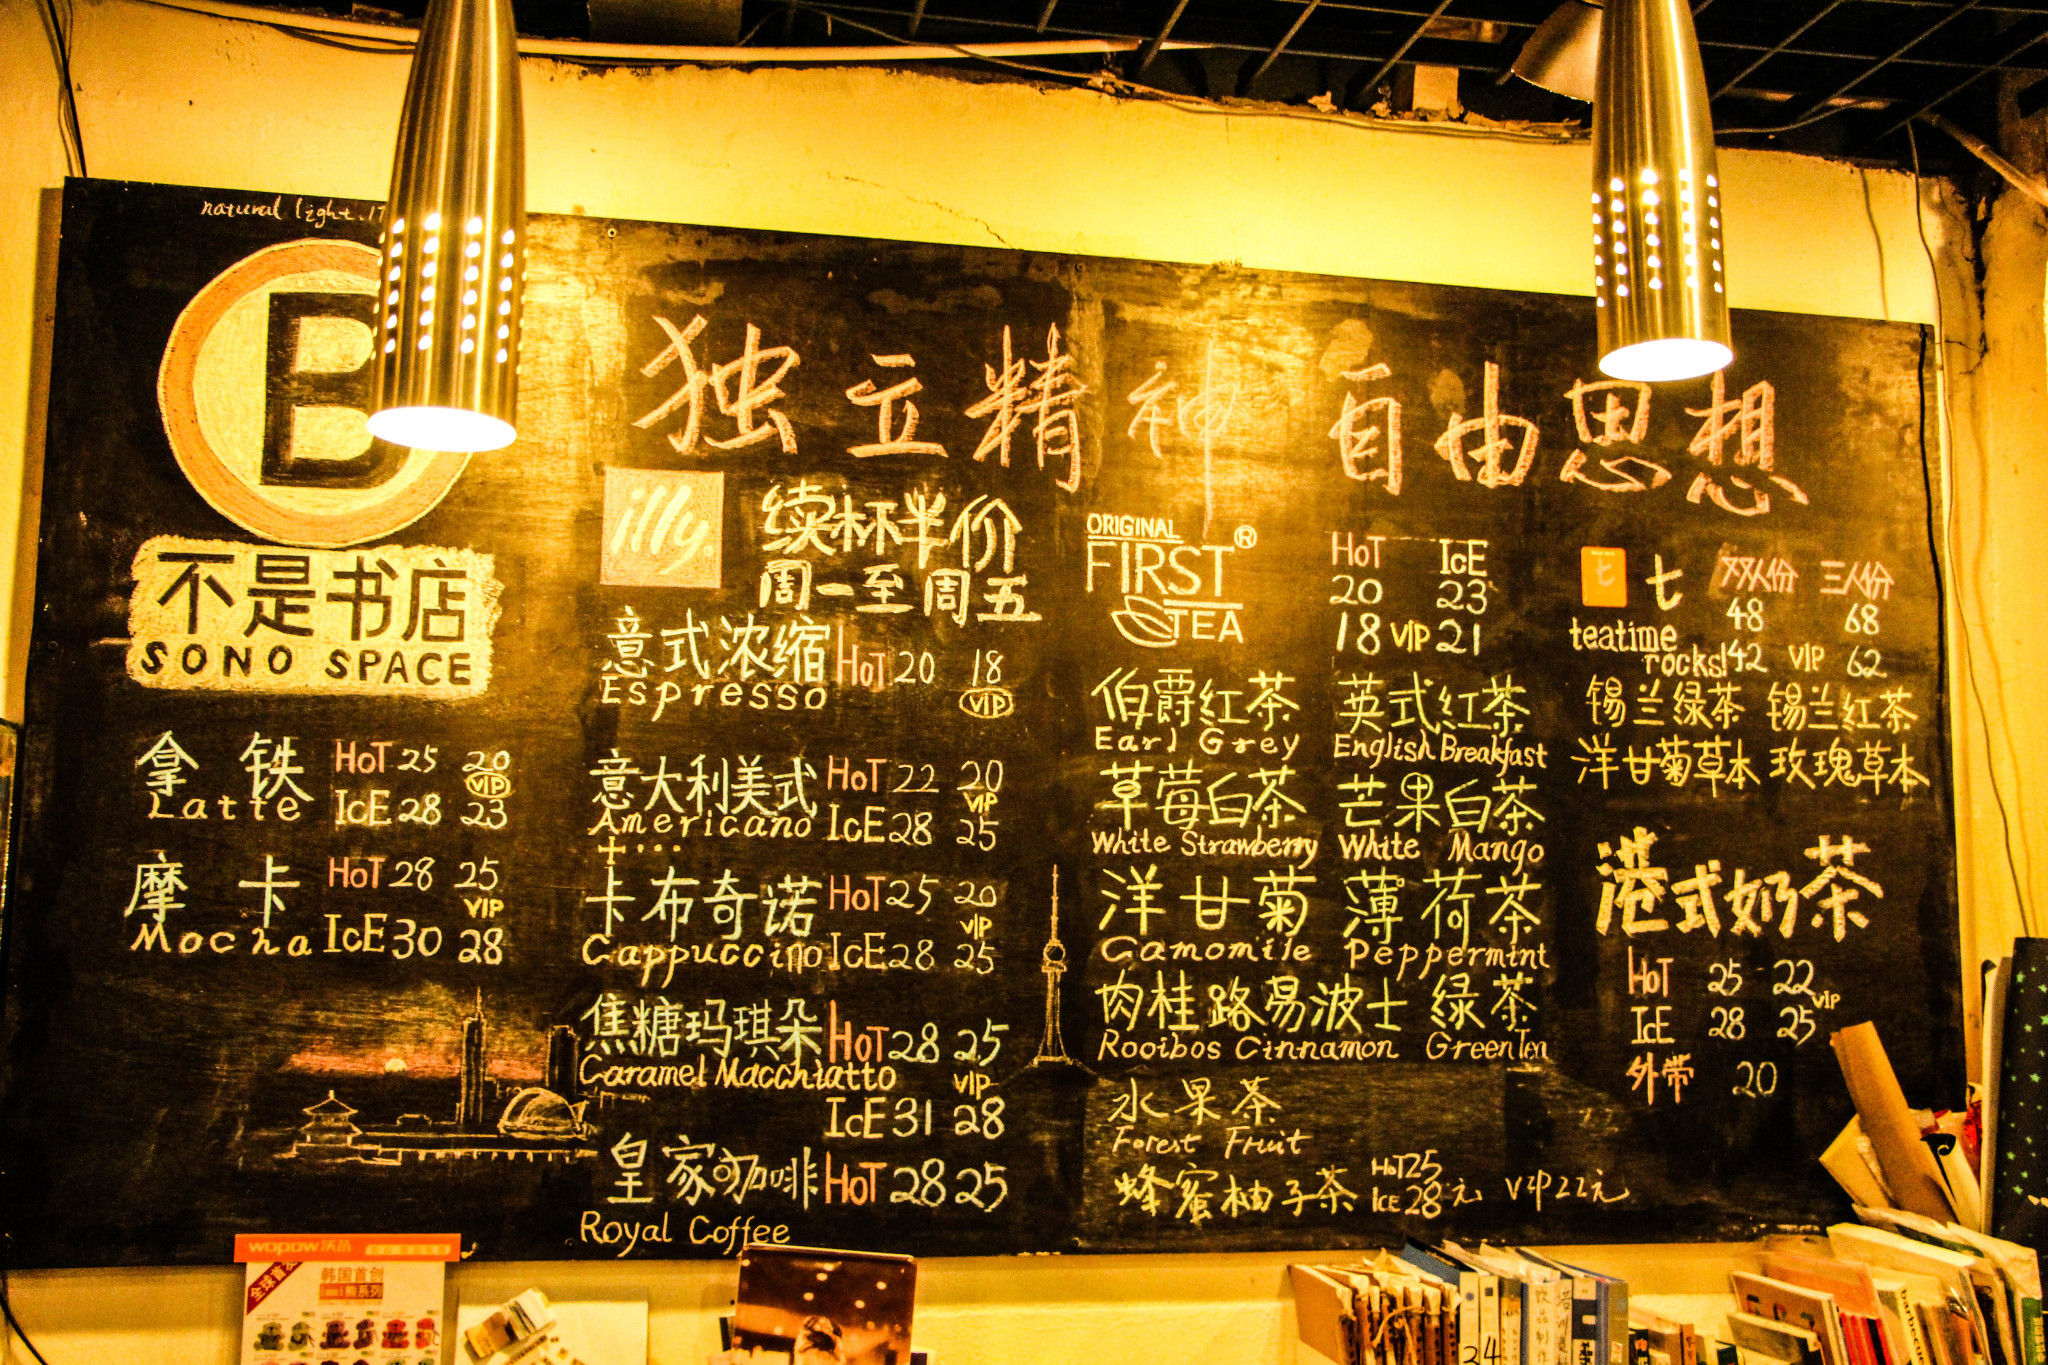 natural light.
B
不是书店
SONO SPACE
拿铁 HOT 25 20
VIP
Latte ICE 28 23
摩卡 HOT 28 25
VIP
Mocha ICE 30 28
独立精神 自由思想
illy
续杯半价
周一至周五
意式浓缩 HOT 20 18
Espresso VIP
意大利美式 HOT 22 20
VIP
Americano ICE 28 25
卡布奇诺 HOT 25 20
VIP
Cappuccino ICE 28 25
焦糖玛琪朵 HOT 28 25
Caramel Macchiatto VIP
ICE 31 28
皇家咖啡 HOT 28 25
Royal Coffee
ORIGINAL
FIRST®
TEA
HOT ICE
20 23
18 VIP 21
伯爵红茶 英式红茶
Earl Grey English Breakfast
草莓白茶 芒果白茶
White Strawberry White Mango
洋甘菊 薄荷茶
Camomile Peppermint
肉桂路易波士 绿茶
Rooibos Cinnamon Green Tea
水果茶
Forest Fruit
蜂蜜柚子茶 HOT 25
ICE 28元 VIP 22元
七 七 双人份 三人份
48 68
teatime
rocks! 42 VIP 62
锡兰绿茶 锡兰红茶
洋甘菊草本 玫瑰草本
港式奶茶
HOT 25 22
VIP
ICE 28 25
外带 20
wopow沃品
全球首发
韩国首创
熊系列
饮品制作
培训
barbecue